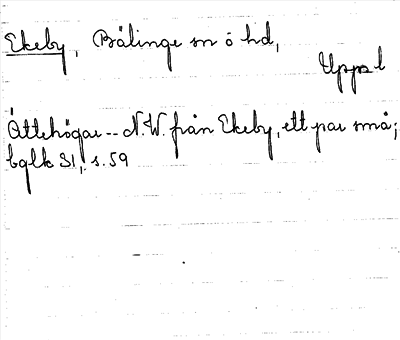 Ekeby, Bälinge sn o hd,
Uppsl
Ättehögar -- N.W. från Ekeby, ett par små;
bglk 31, s. 59